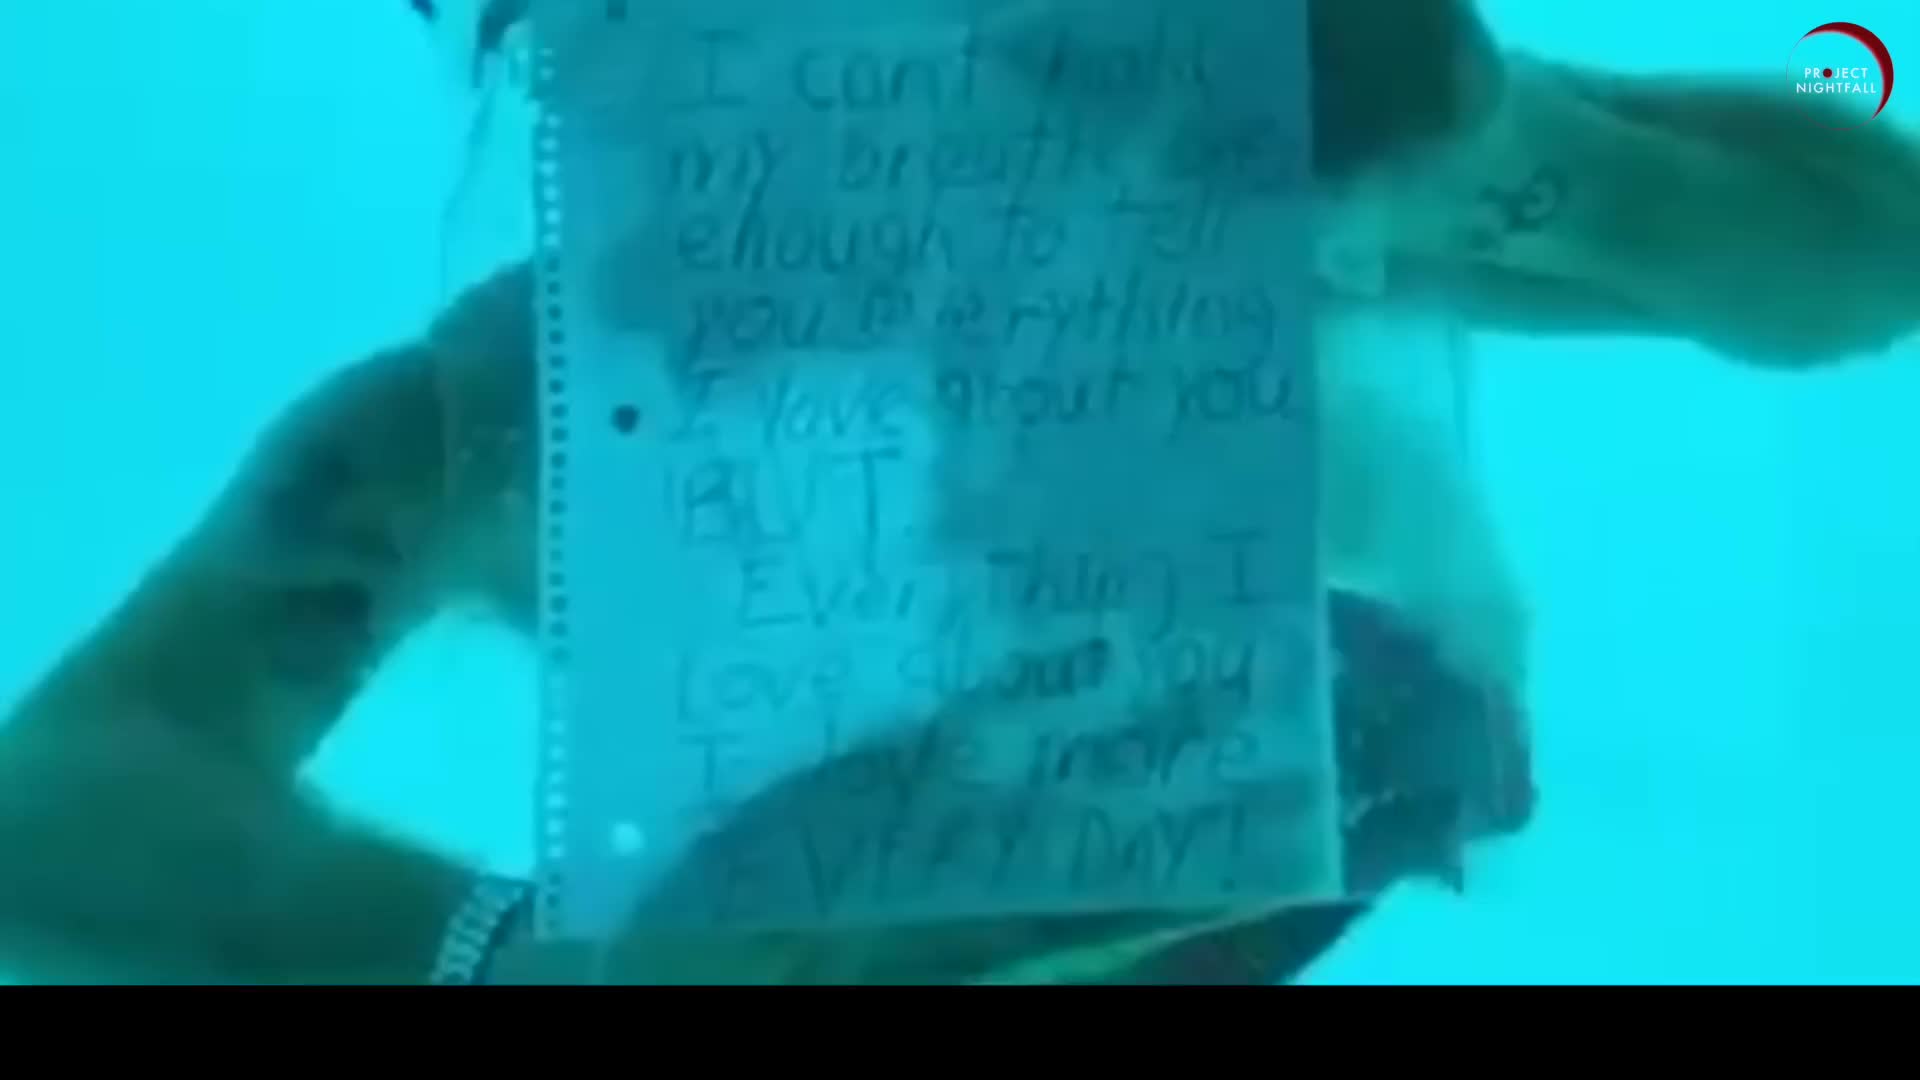 I can't hold
my breath long
enough to tell
you everything
I love about you
BUT.
Everything I
Love about you
I love more
EVERY DAY!
PROJECT
NIGHTFALL